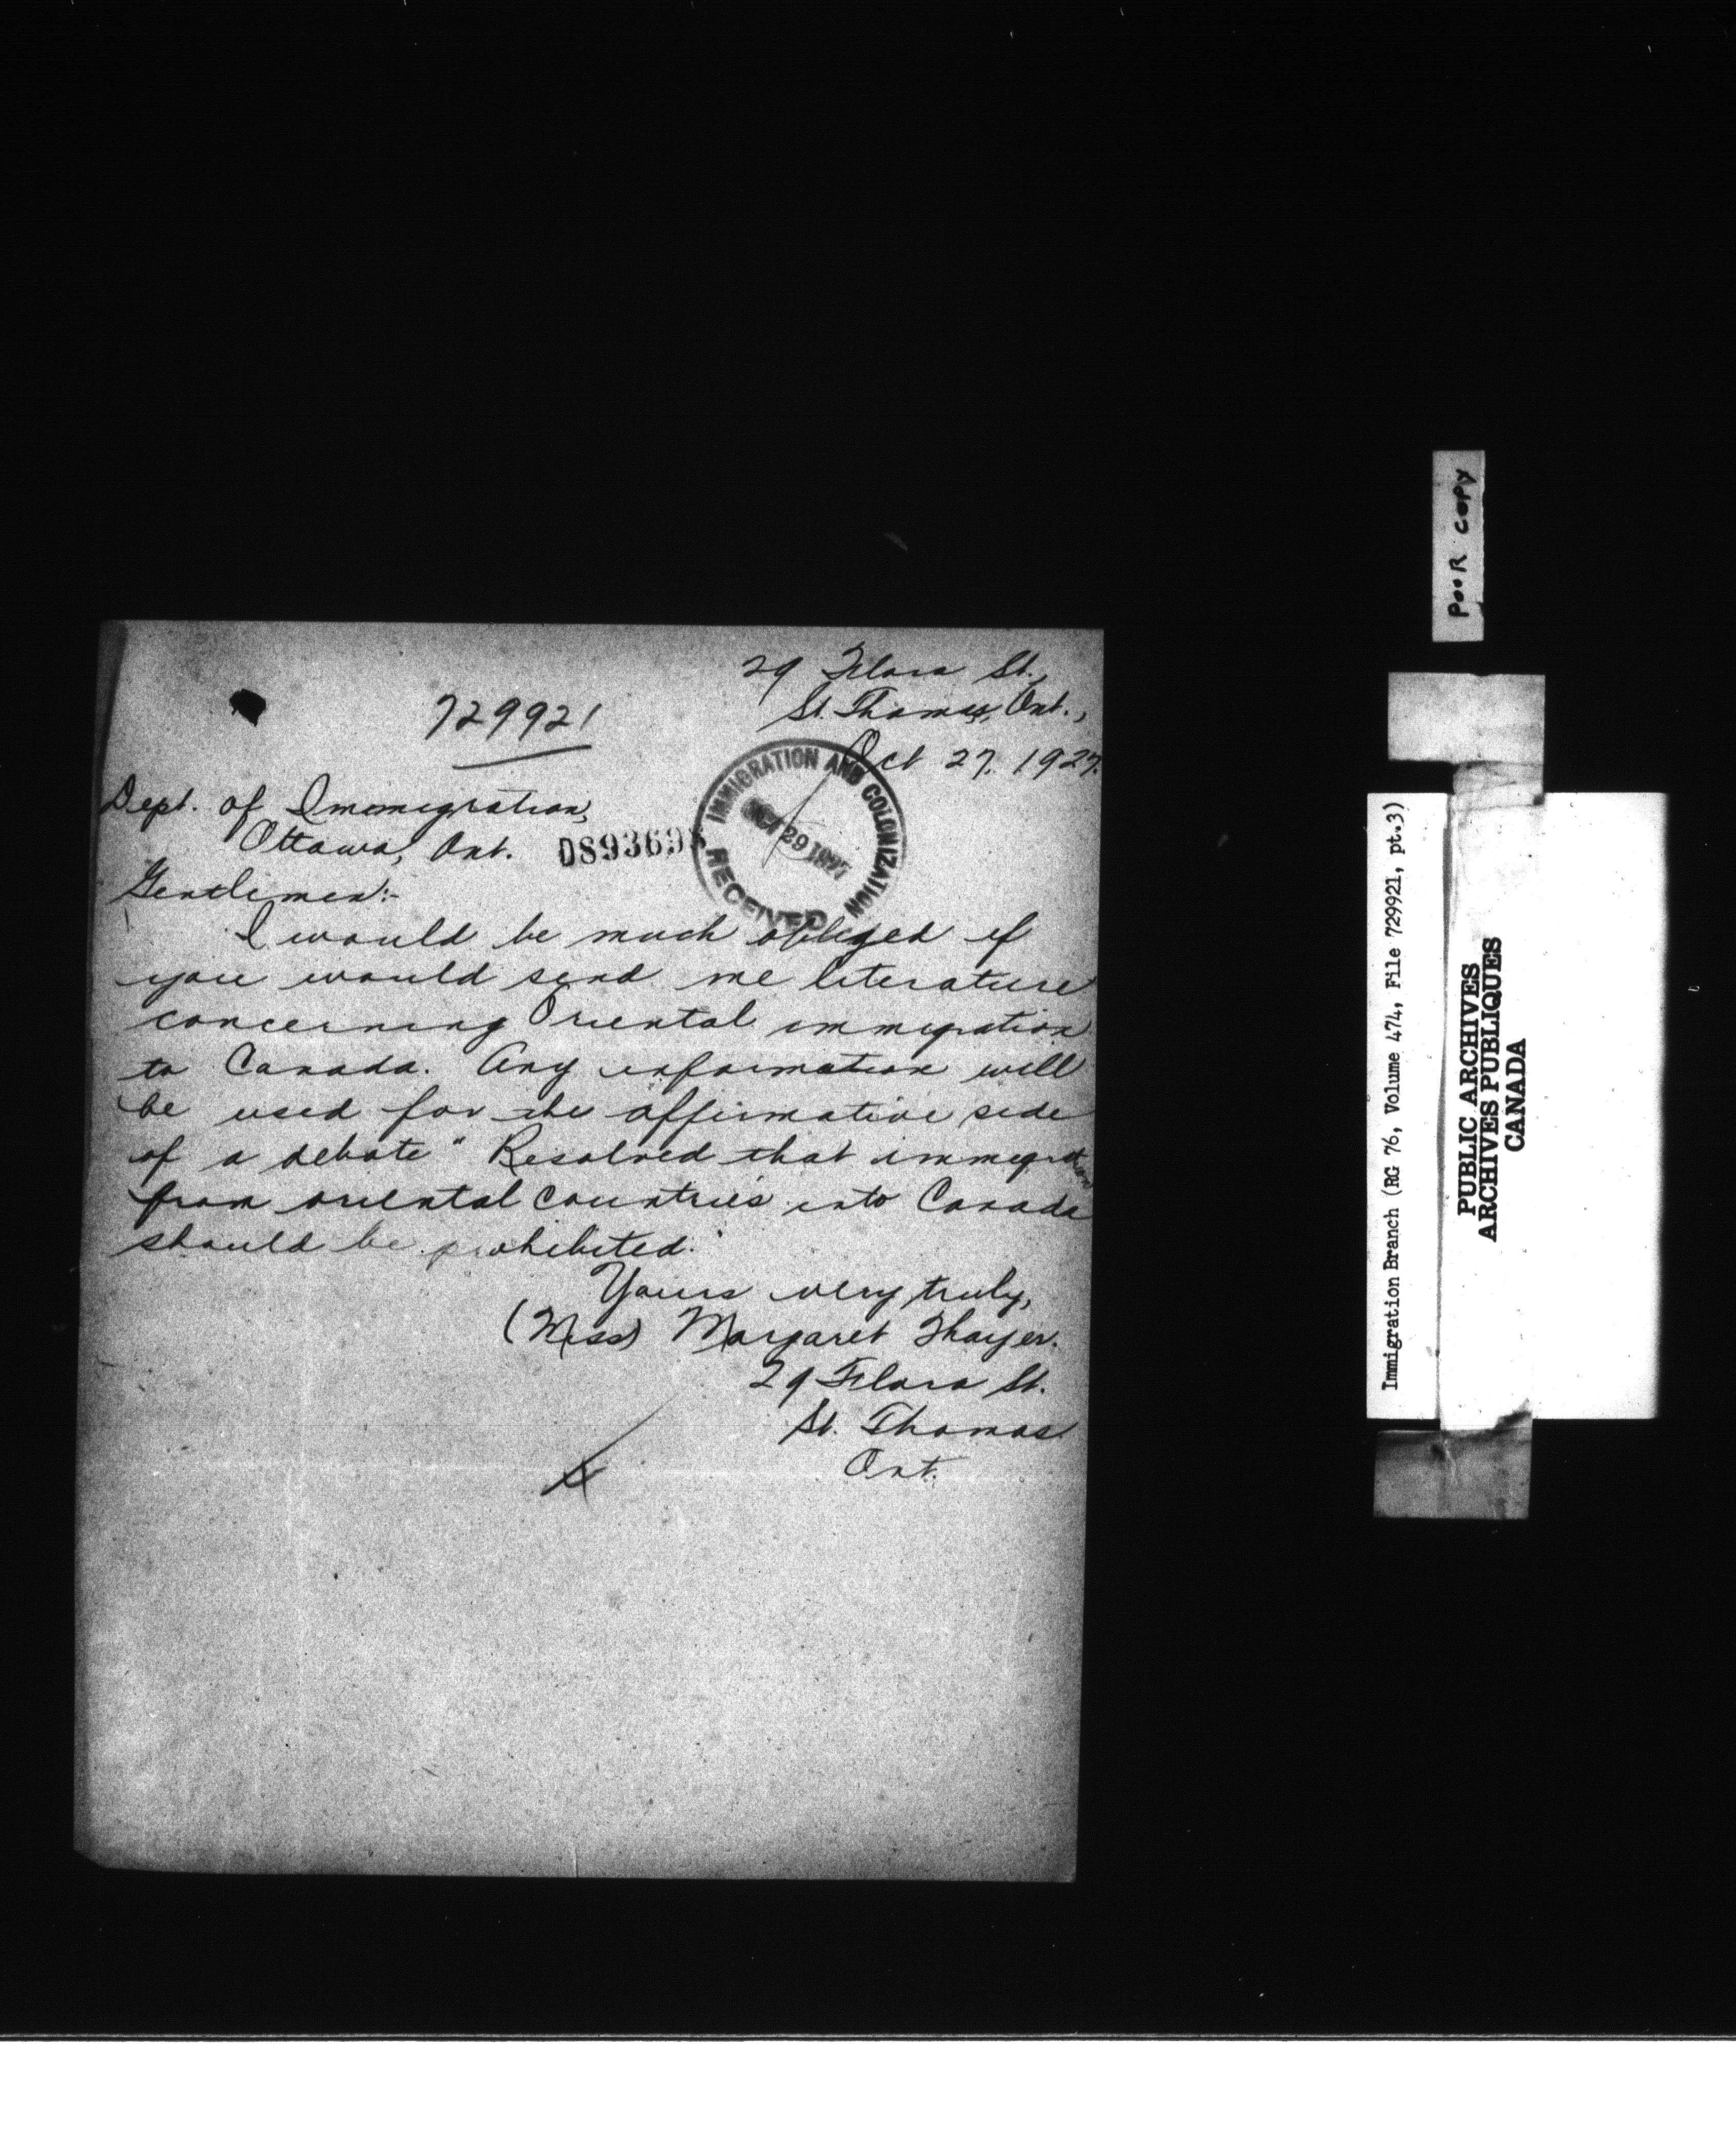 29 Flora St.,
St. Thomas, Ont.,
729921
Oct 27, 1927.
Dept. of Immigration,
Ottawa, Ont.
D89369
IMMIGRATION AND COLONIZATION
OCT 29 1927
RECEIVED
Gentlemen:-
I would be much obliged if
you would send me literature
concerning Oriental immigration
to Canada. Any information will
be used for the affirmative side
of a debate "Resolved that immigration
from oriental countries into Canada
should be prohibited."
Yours very truly,
(Miss) Margaret Thayer.
29 Flora St.
St. Thomas
Ont.
POOR COPY
Immigration Branch (RG 76, Volume 474, File 729921, pt.3)
PUBLIC ARCHIVES
ARCHIVES PUBLIQUES
CANADA